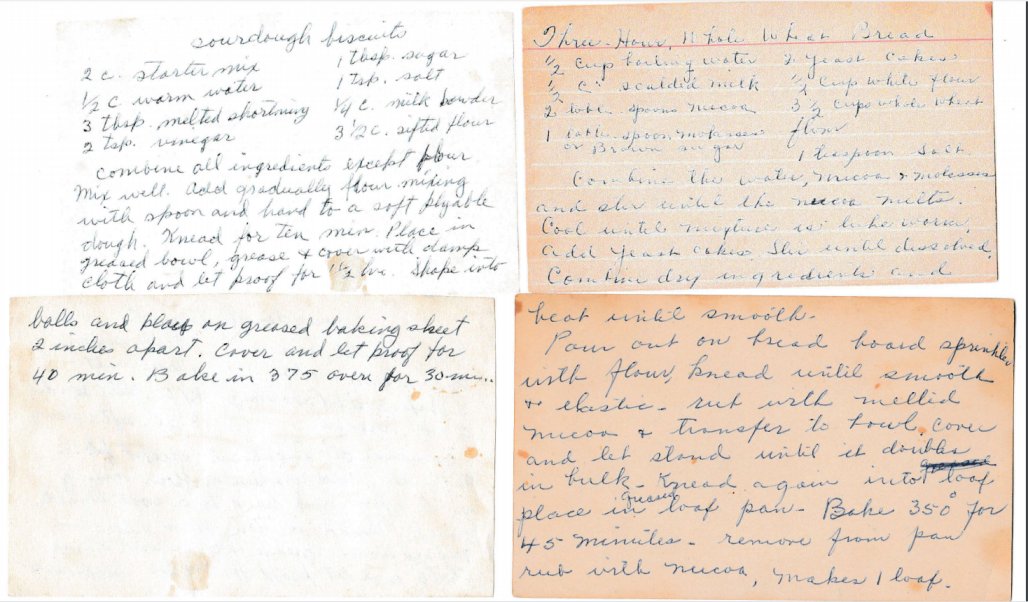 sourdough biscuits
2 c. starter mix
1 tbsp. sugar
½ c warm water
1 tsp. salt
3 tbsp. melted shortning
¼ c. milk powder
2 tsp. vinegar
3 ½ c. sifted flour
combine all ingredients except flour.
Mix well. Add gradually flour mixing
with spoon and hand to a soft plyable
dough. Knead for ten min. Place in
greased bowl, grease + cover with damp
cloth and let proof for 1½ hr. Shape into
balls and place on greased baking sheet
2 inches apart. Cover and let proof for
40 min. Bake in 375 oven for 30 min..
Three-Hour, Whole Wheat Bread
½ cup boiling water 2 yeast cakes
½ c. scalded milk ½ cup white flour
2 table spoons nucoa 3 ½ cups whole wheat
1 table spoon molasses flour
or Brown sugar 1 teaspoon salt
Combine the water, nucoa + molasses
and stir until the nucoa melts.
Cool until mixture is luke warm,
add yeast cakes. Stir until dissolved.
Combine dry ingredients and
beat until smooth.
Pour out on bread board sprinkled
with flour, knead until smooth
+ elastic - rub with melted
nucoa + transfer to bowl, cover
and let stand until it doubles
in bulk - Knead again into loaf
place in greased loaf pan - Bake 350° for
45 minutes - remove from pan
rub with nucoa, makes 1 loaf.